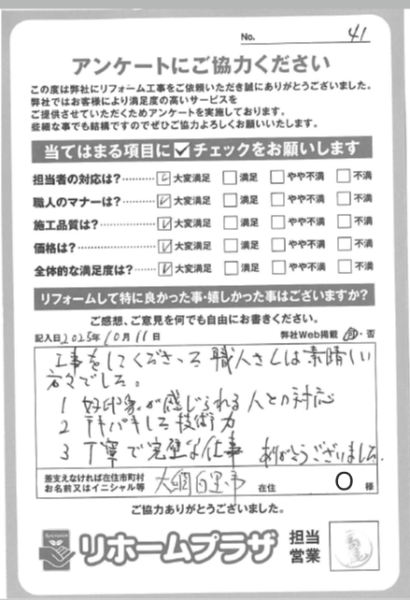 No. 41
アンケートにご協力ください
この度は弊社にリフォーム工事をご依頼いただき誠にありがとうございました。
弊社ではお客様により満足度の高いサービスを
ご提供させていただくためアンケートを実施しております。
些細な事でも結構ですのでぜひご協力よろしくお願いいたします。
当てはまる項目に☑チェックをお願いします
担当者の対応は?………… ☑大変満足 □満足 □やや不満 □不満
職人のマナーは?………… ☑大変満足 □満足 □やや不満 □不満
施工品質は?……………… ☑大変満足 □満足 □やや不満 □不満
価格は?…………………… ☑大変満足 □満足 □やや不満 □不満
全体的な満足度は?……… ☑大変満足 □満足 □やや不満 □不満
リフォームして特に良かった事・嬉しかった事はございますか?
ご感想、ご意見を何でも自由にお書きください。
記入日2025年10月11日 弊社Web掲載 可・否
工事をしてくださった職人さんは素晴しい
方々でした。
1 好印象が感じられる人との対応
2 テキパキした技術力
3 丁寧で完璧な仕事 ありがとうございました。
差支えなければ在住市町村
お名前又はイニシャル等 大網白里市 在住 O 様
ご協力ありがとうございました。
リホームプラザ
担当
営業